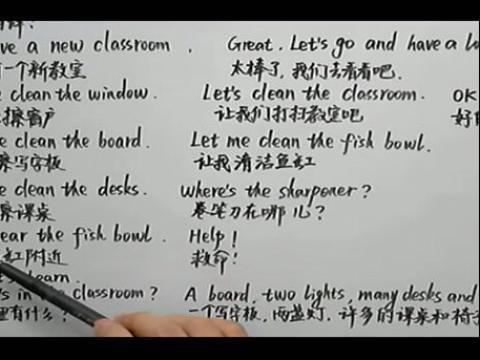 a new classroom . Great. Let's go and have a
一个新教室 太棒了,我们去看看吧.
clean the window. Let's clean the classroom. OK
擦窗户 让我们打扫教室吧 好
clean the board. Let me clean the fish bowl.
擦写字板 让我清洁鱼缸
clean the desks. Where's the sharpener?
擦课桌 卷笔刀在哪儿?
the fish bowl. Help!
缸附近 救命!
learn.
in the classroom? A board, two lights, many desks and
有什么? 一个写字板,两盏灯,许多的课桌和椅子